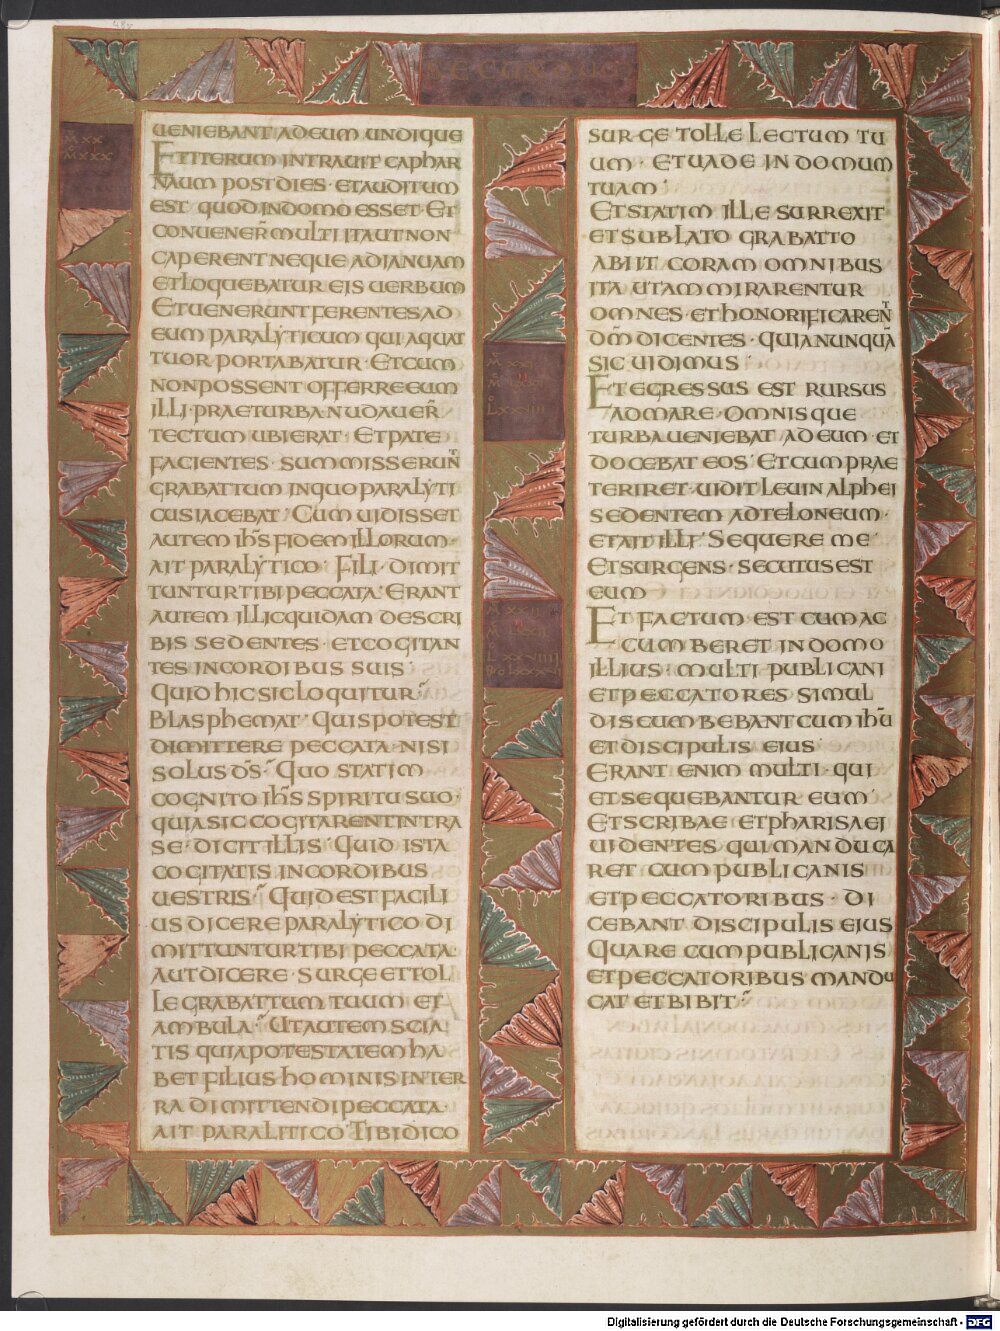 SECUNDUM
UENIEBANT ADEUM UNDIQUE
ETITERUM INTRAUIT CAPHAR
NAUM POSTDIES · ETAUDITUM
EST QUODINDOMO ESSET · ET
CONUENER̄ MULTI ITAUTNON
CAPERENT NEQUE ADIANUAM
ETLOQUEBATUR EIS UERBUM
ETUENERUNT FERENTES AD
EUM PARALYTICUM QUI AQUAT
TUOR PORTABATUR · ETCUM
NONPOSSENT OFFERREEUM
ILLI · PRAETURBA · NUDAUER̄
TECTUM UBIERAT · ETPATE
FACIENTES · SUMMISSERUN̄T
GRABATTUM INQUO PARALYTI
CUSIACEBAT · CUM UIDISSET
AUTEM IHS̄ FIDEM ILLORUM ·
AIT PARALYTICO · FILI · DIMIT
TUNTURTIBI PECCATA · ERANT
AUTEM ILLICQUIDAM DESCRI
BIS SEDENTES · ETCOGITAN
TES INCORDIBUS SUIS ·
QUIDHIC SICLOQUITUR ·
BLASPHEMAT · QUISPOTEST
DIMITTERE PECCATA · NISI
SOLUS DS̄ · QUO STATIM
COGNITO IHS̄ SPIRITU SUO ·
QUIASIC COGITARENTINTRA
SE · DICIT ILLIS · QUID ISTA
COGITATIS INCORDIBUS
UESTRIS · QUIDEST FACILI
US DICERE PARALYTICO DI
MITTUNTURTIBI PECCATA ·
AUT DICERE · SURGE ETTOL
LE GRABATTUM TUUM ET
AMBULA · UTAUTEM SCIA
TIS QUIAPOTESTATEM HA
BET FILIUS HOMINIS INTER
RA DIMITTENDI PECCATA ·
AIT PARALITICO TIBIDICO
SURGE TOLLE LECTUM TU
UM · ETUADE IN DOMUM
TUAM ·
ETSTATIM ILLE SURREXIT
ETSUBLATO GRABATTO
ABIIT CORAM OMNIBUS
ITA UTAMMIRARENTUR
OMNES · ETHONORIFICAREN̄T
DM̄ DICENTES · QUIANUNQUĀ
SIC UIDIMUS ·
ETEGRESSUS EST RURSUS
ADMARE · OMNISQUE
TURBAUENIEBAT ADEUM · ET
DOCEBAT EOS · ETCUMPRAE
TERIRET · UIDIT LEUIN ALPHEI
SEDENTEM ADTELONEUM ·
ETAIT ILLI · SEQUERE ME ·
ETSURGENS · SECUTUSEST
EUM
ET FACTUM EST CUMAC
CUMBERET INDOMO
ILLIUS · MULTI PUBLICANI
ETPECCATORES SIMUL
DISCUMBEBANT CUM IHŪ
ET DISCIPULIS EIUS ·
ERANT ENIM MULTI · QUI
ETSEQUEBANTUR EUM ·
ETSCRIBAE ETPHARISAEI
UIDENTES QUI MANDUCA
RET CUM PUBLICANIS
ETPECCATORIBUS · DI
CEBANT DISCIPULIS EIUS
QUARE CUMPUBLICANIS
ETPECCATORIBUS MANDU
CAT ETBIBIT ·
Digitalisierung gefördert durch die Deutsche Forschungsgemeinschaft - DFG